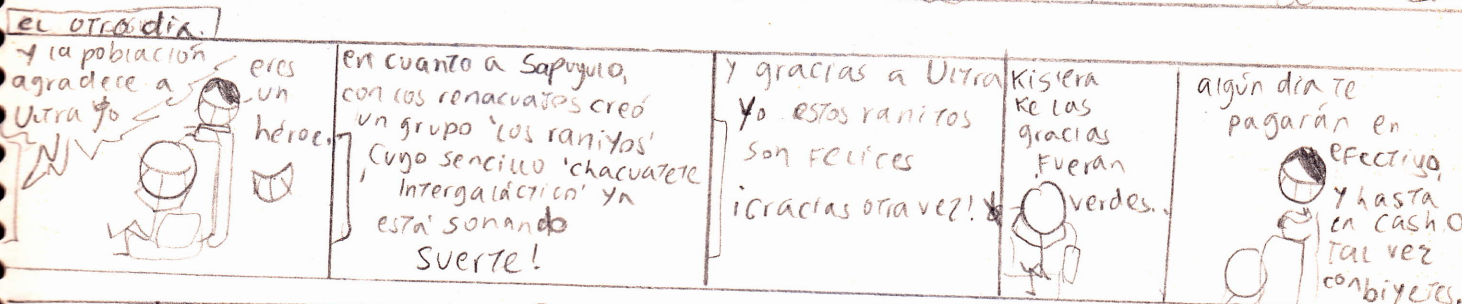 el otro dia.
y la población
agradece a
Ultra Yo
eres
un
héroe.
en cuanto a Sapuyulo,
con los renacuajos creó
un grupo 'los raniyos'
cuyo sencillo 'chacuatete
intergaláctico' ya
está sonando
suerte!
y gracias a Ultra
Yo estos ranitos
son felices
¡Gracias otra vez!
Kisiera
Ke las
gracias
fueran
verdes..
algún dia te
pagarán en
efectivo,
y hasta
en cash. O
tal vez
con biyetes.